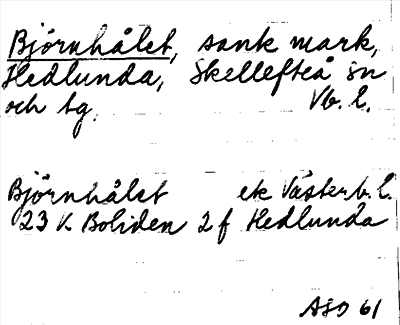 Björnhålet, sank mark,
Hedlunda, Skellefteå sn
och tg. Vb. l.
Björnhålet ek Västerb. l.
23 K Boliden 2 f Hedlunda
ASD 61